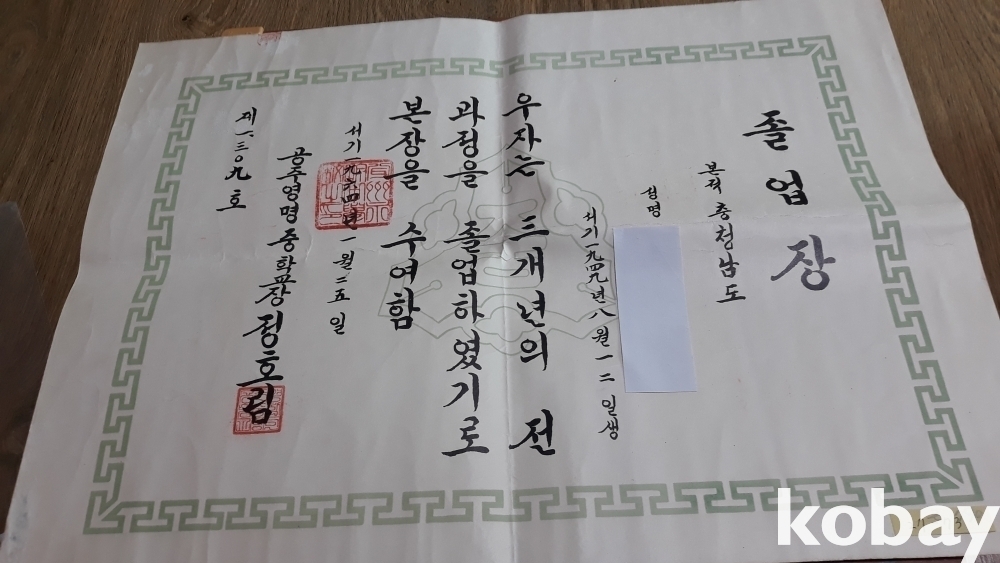 졸업장
본적 충청남도
성명
서기一九四九년八월一二일생
우자는 三개년의 전
과정을 졸업하였기로
본장을 수여함
서기一九六四년一월二五일
공주영명중학교장 정호림
제一.三〇九호
kobay